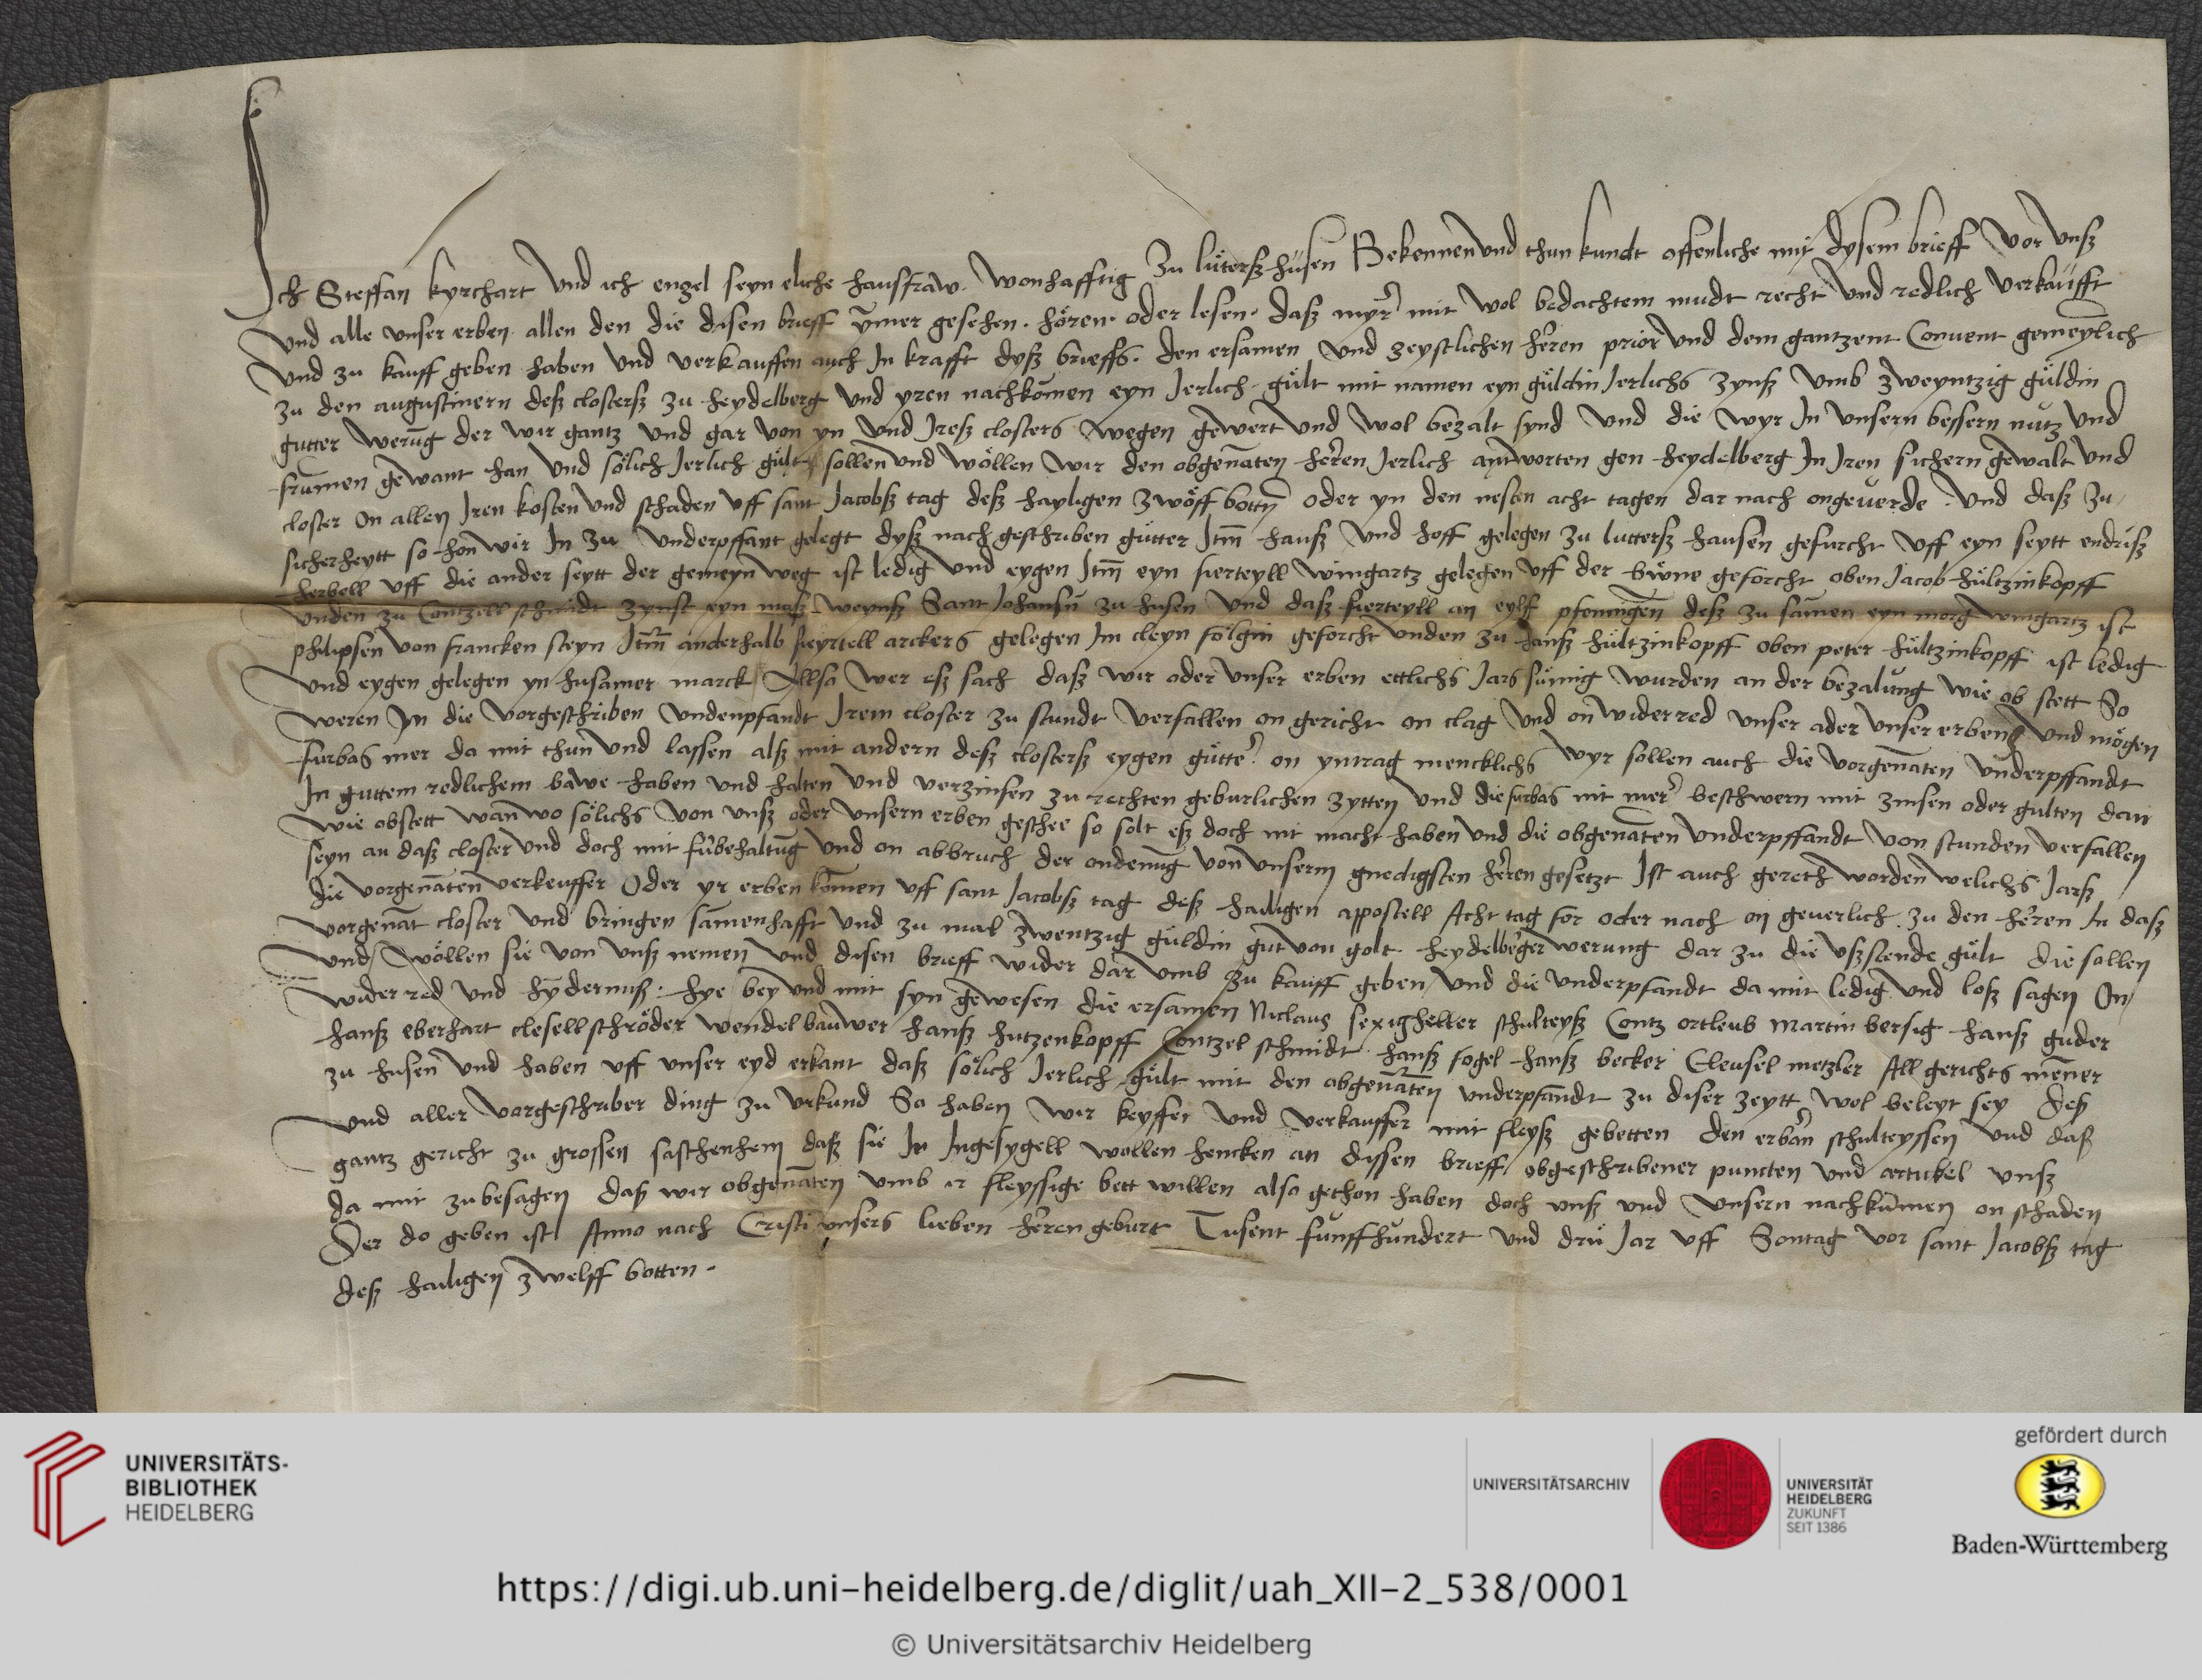 Ich Steffan kyrchart und ich engel seyn eliche hausfraw wonhafftig zu lüterßhusen Bekennen und thun kundt offenliche mit dysem brieff vor unß
und alle unser erben allen den die disen brieff ymer gesehen hören oder lesen daß myr mit wol bedachtem mudt recht und redlich verkaufft
und zu kauff geben haben und verkauffen auch In krafft dyß brieffs den ersamen und geystlichen heren prior und dem gantzent Convent gemeylich
zu den augustinern deß closterß zu heydelberg und yren nachkomen eyn Jerlich gült mit namen eyn güldin Jerlichs zynß umb zweyntzig güldin
gutter werung der wir gantz und gar von yn und Ireß closters wegen gewert und wol bezalt synd und die wyr In unsern bessern nutz und
frumen gewant han und sölich Jerlich gült sollen und wöllen wir den obgenaten heren Jerlich antworten gen heydelberg In Iren sichern gewalt und
closter On allen Iren kosten und schaden uff sant Jacobß tag deß hayligen zwöff botty oder yn den nesten acht tagen dar nach ongeverde und daß zu
sicherheytt so hon wir In zu underpffant gelegt dyß nach geschriben gütter Itm hauß und hoff gelegen zu lutterß hausen gefurcht uff eyn seytt endriß
herbell uff die ander seytt der gemeyn weg ist ledig und eygen Itm eyn fierteyll wingartz gelegen uff der bwne geforcht oben Jacob hültzinkopff
unden zu Contzell schmidt zynst eyn maß weynß Sant Johansen zu husen und daß fierteyll an eylf pfeningen deß zu samen eyn morg wingartz ist
philipsen von francken steyn Itm anderhalb fieyrtell arckers gelegen Im cleyn fölgin geforcht unden zu hanß hültzinkopff oben peter hültzinkopff ist ledig
und eygen gelegen yn husamer marck Allso wer eß sach daß wir oder unser erben ettlichs Jars sümig wurden an der bezalung wie ob stett So
weren yn die vorgeschriben undenpfandt Irem closter zu stundt verfallen on gericht on clag und on widerred unser ader unser erben und mögen
furbas mer da mit thun und lassen alß mit andern deß closterß eygen gütter on yntrag mencklichs wyr sollen auch die vorgenaten underpffandt
In guttem redlichem bawe haben und halten und verzinsen zu rechten geburlichen zytten und die furbas nit mer beschwern mit zinsen oder gulten dan
wie obstett wan wo sölichs von unß oder unsern erben geschee so solt eß doch nit macht haben und die obgenaten underpffandt von stunden verfallen
seyn an daß closter und doch mit fürbehaltung und on abbruch der ondenung von unserm gnedigsten heren gesetzt Ist auch gereth worden welichs Jarß
die vorgenaten verkeuffer Oder yr erben komen uff sant Jacobß tag deß hailigen appostell Acht tag for oder nach on geverlich zu den heren In daß
vorgenat closter und bringen samenhafft und zu mal zwentzig güldin gut von golt heydelberger werung dar zu die ußstende gült die sollen
und wöllen sie von unß nemen und disen brieff wider dar umb zu kauff geben und die underpfandt da mit ledig und loß sagen On
wider red und hyndernuß hye bey und mit syn gewesen die ersamen Niclaus sexighelter schulteyß Contz ortleub Martin bersig hanß guder
hanß eberhart clesell schröder wendel bauwer hanß hutzenkopff Contzel schmidt hanß fogel hanß becker Cleusel metzler All gerichts mener
zu husen und haben uff unser eyd erkant daß sölich Jerlich gült mit den obgenaten underpfandt zu diser zeytt wol beleyt sey Deß
und aller vorgeschriber ding zu urkund So haben wir keyffer und verkauffer mit fleyß gebetten den erbarn schulteyssen und daß
gantz gericht zu grossen saschenhem daß sie Ir Ingesygell wollen hencken an dyssen brieff obgeschribener puncten und artickel unß
da mit zubesagen daß wir obgenaten umb ir fleyssige bett willen also gethon haben doch unß und unsern nachkumen on schaden
Der do geben ist Anno nach Cristi unsers lieben heren geburt Tusent funffhundert und drü Jar uff Sontag vor sant Jacobß tag
deß hailigen zwelff botten.
UNIVERSITÄTS-
BIBLIOTHEK
HEIDELBERG
UNIVERSITÄTSARCHIV
UNIVERSITÄT
HEIDELBERG
ZUKUNFT
SEIT 1386
gefördert durch
Baden-Württemberg
https://digi.ub.uni-heidelberg.de/diglit/uah_XII-2_538/0001
© Universitätsarchiv Heidelberg